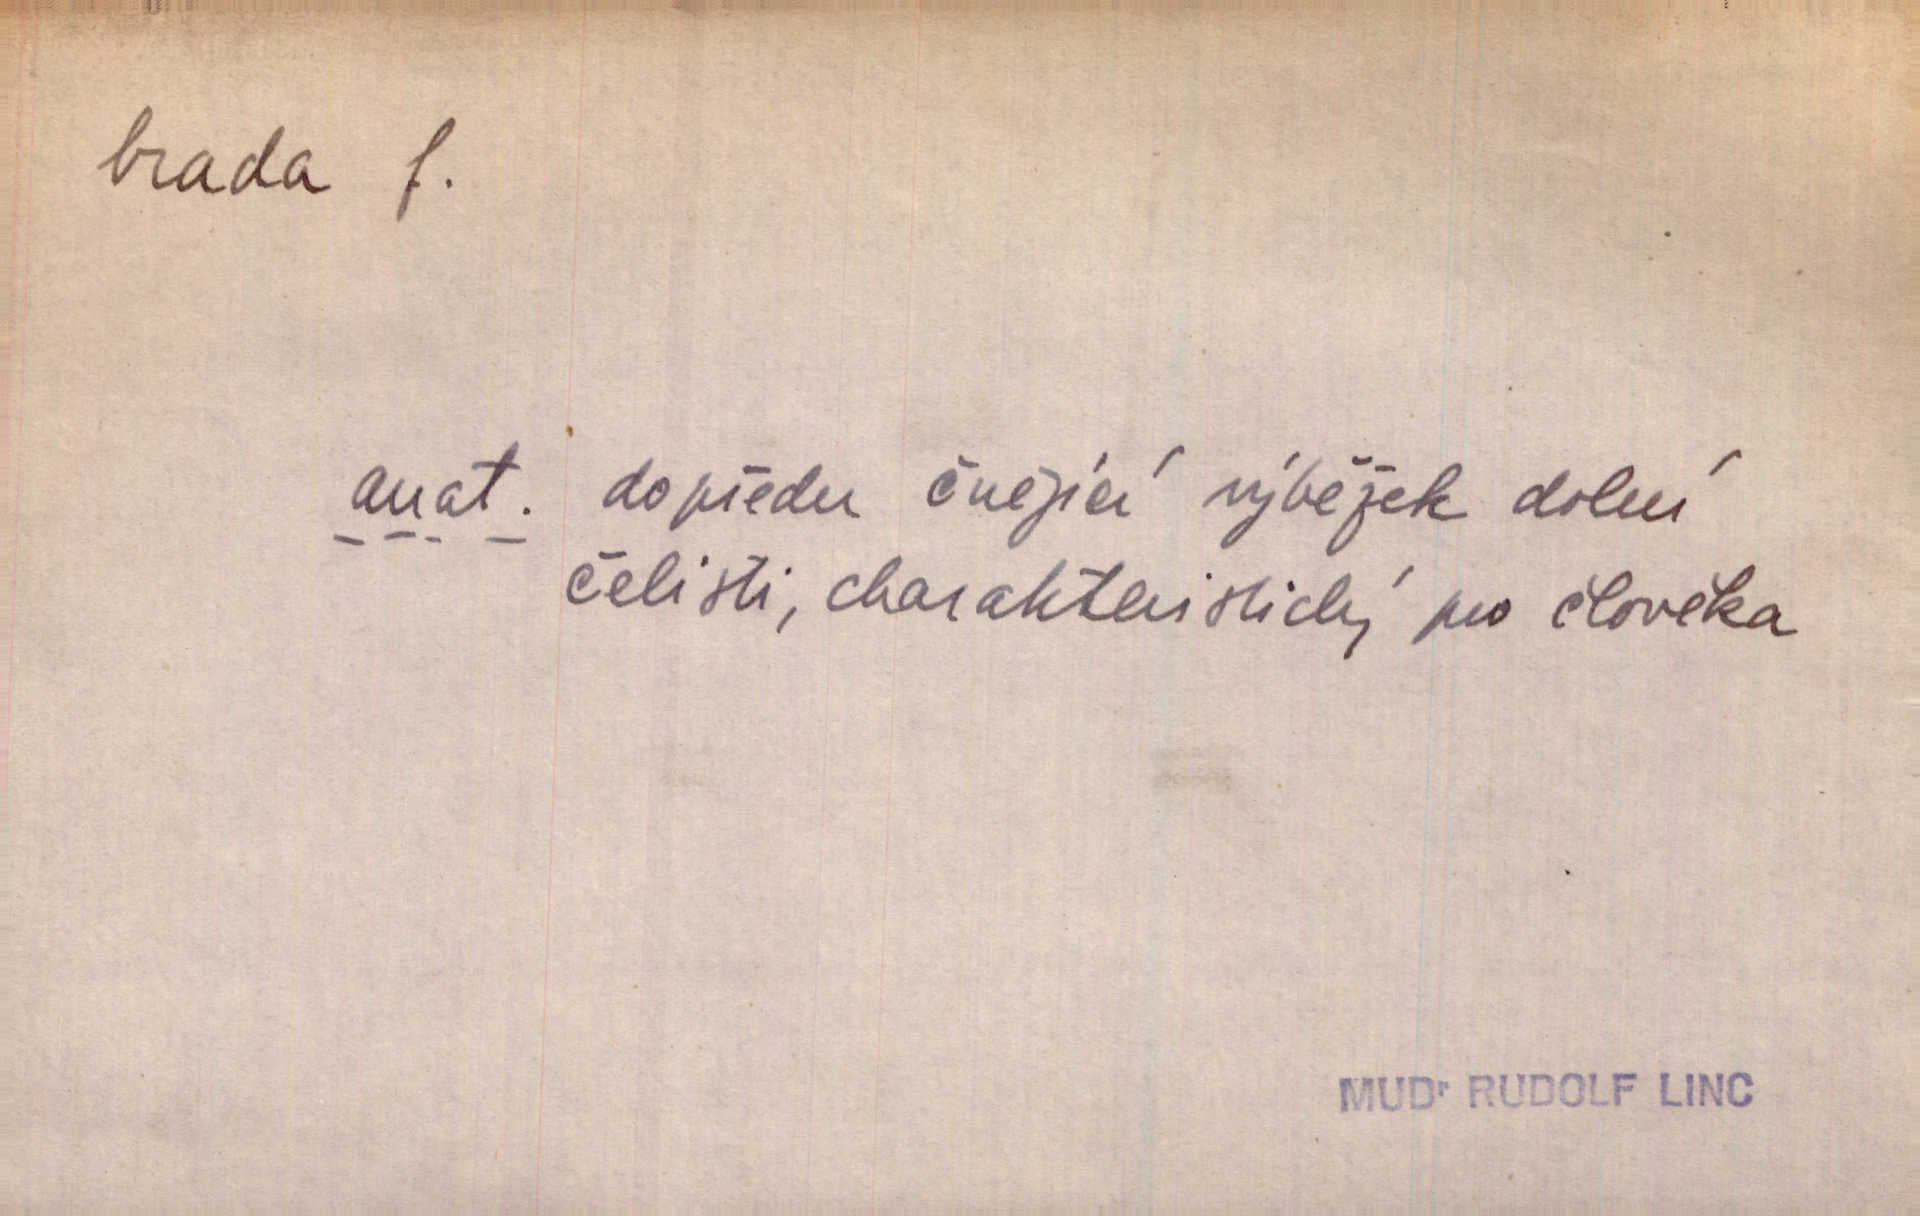 brada f.
anat. dopředu čnějící výběžek dolní
čelisti, charakteristický pro člověka
MUDr RUDOLF LINC